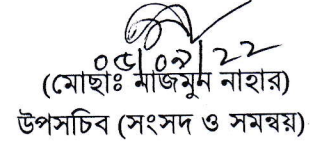 ০৫/০৯/২২
(মোছাঃ মাজমুন নাহার)
উপসচিব (সংসদ ও সমন্বয়)